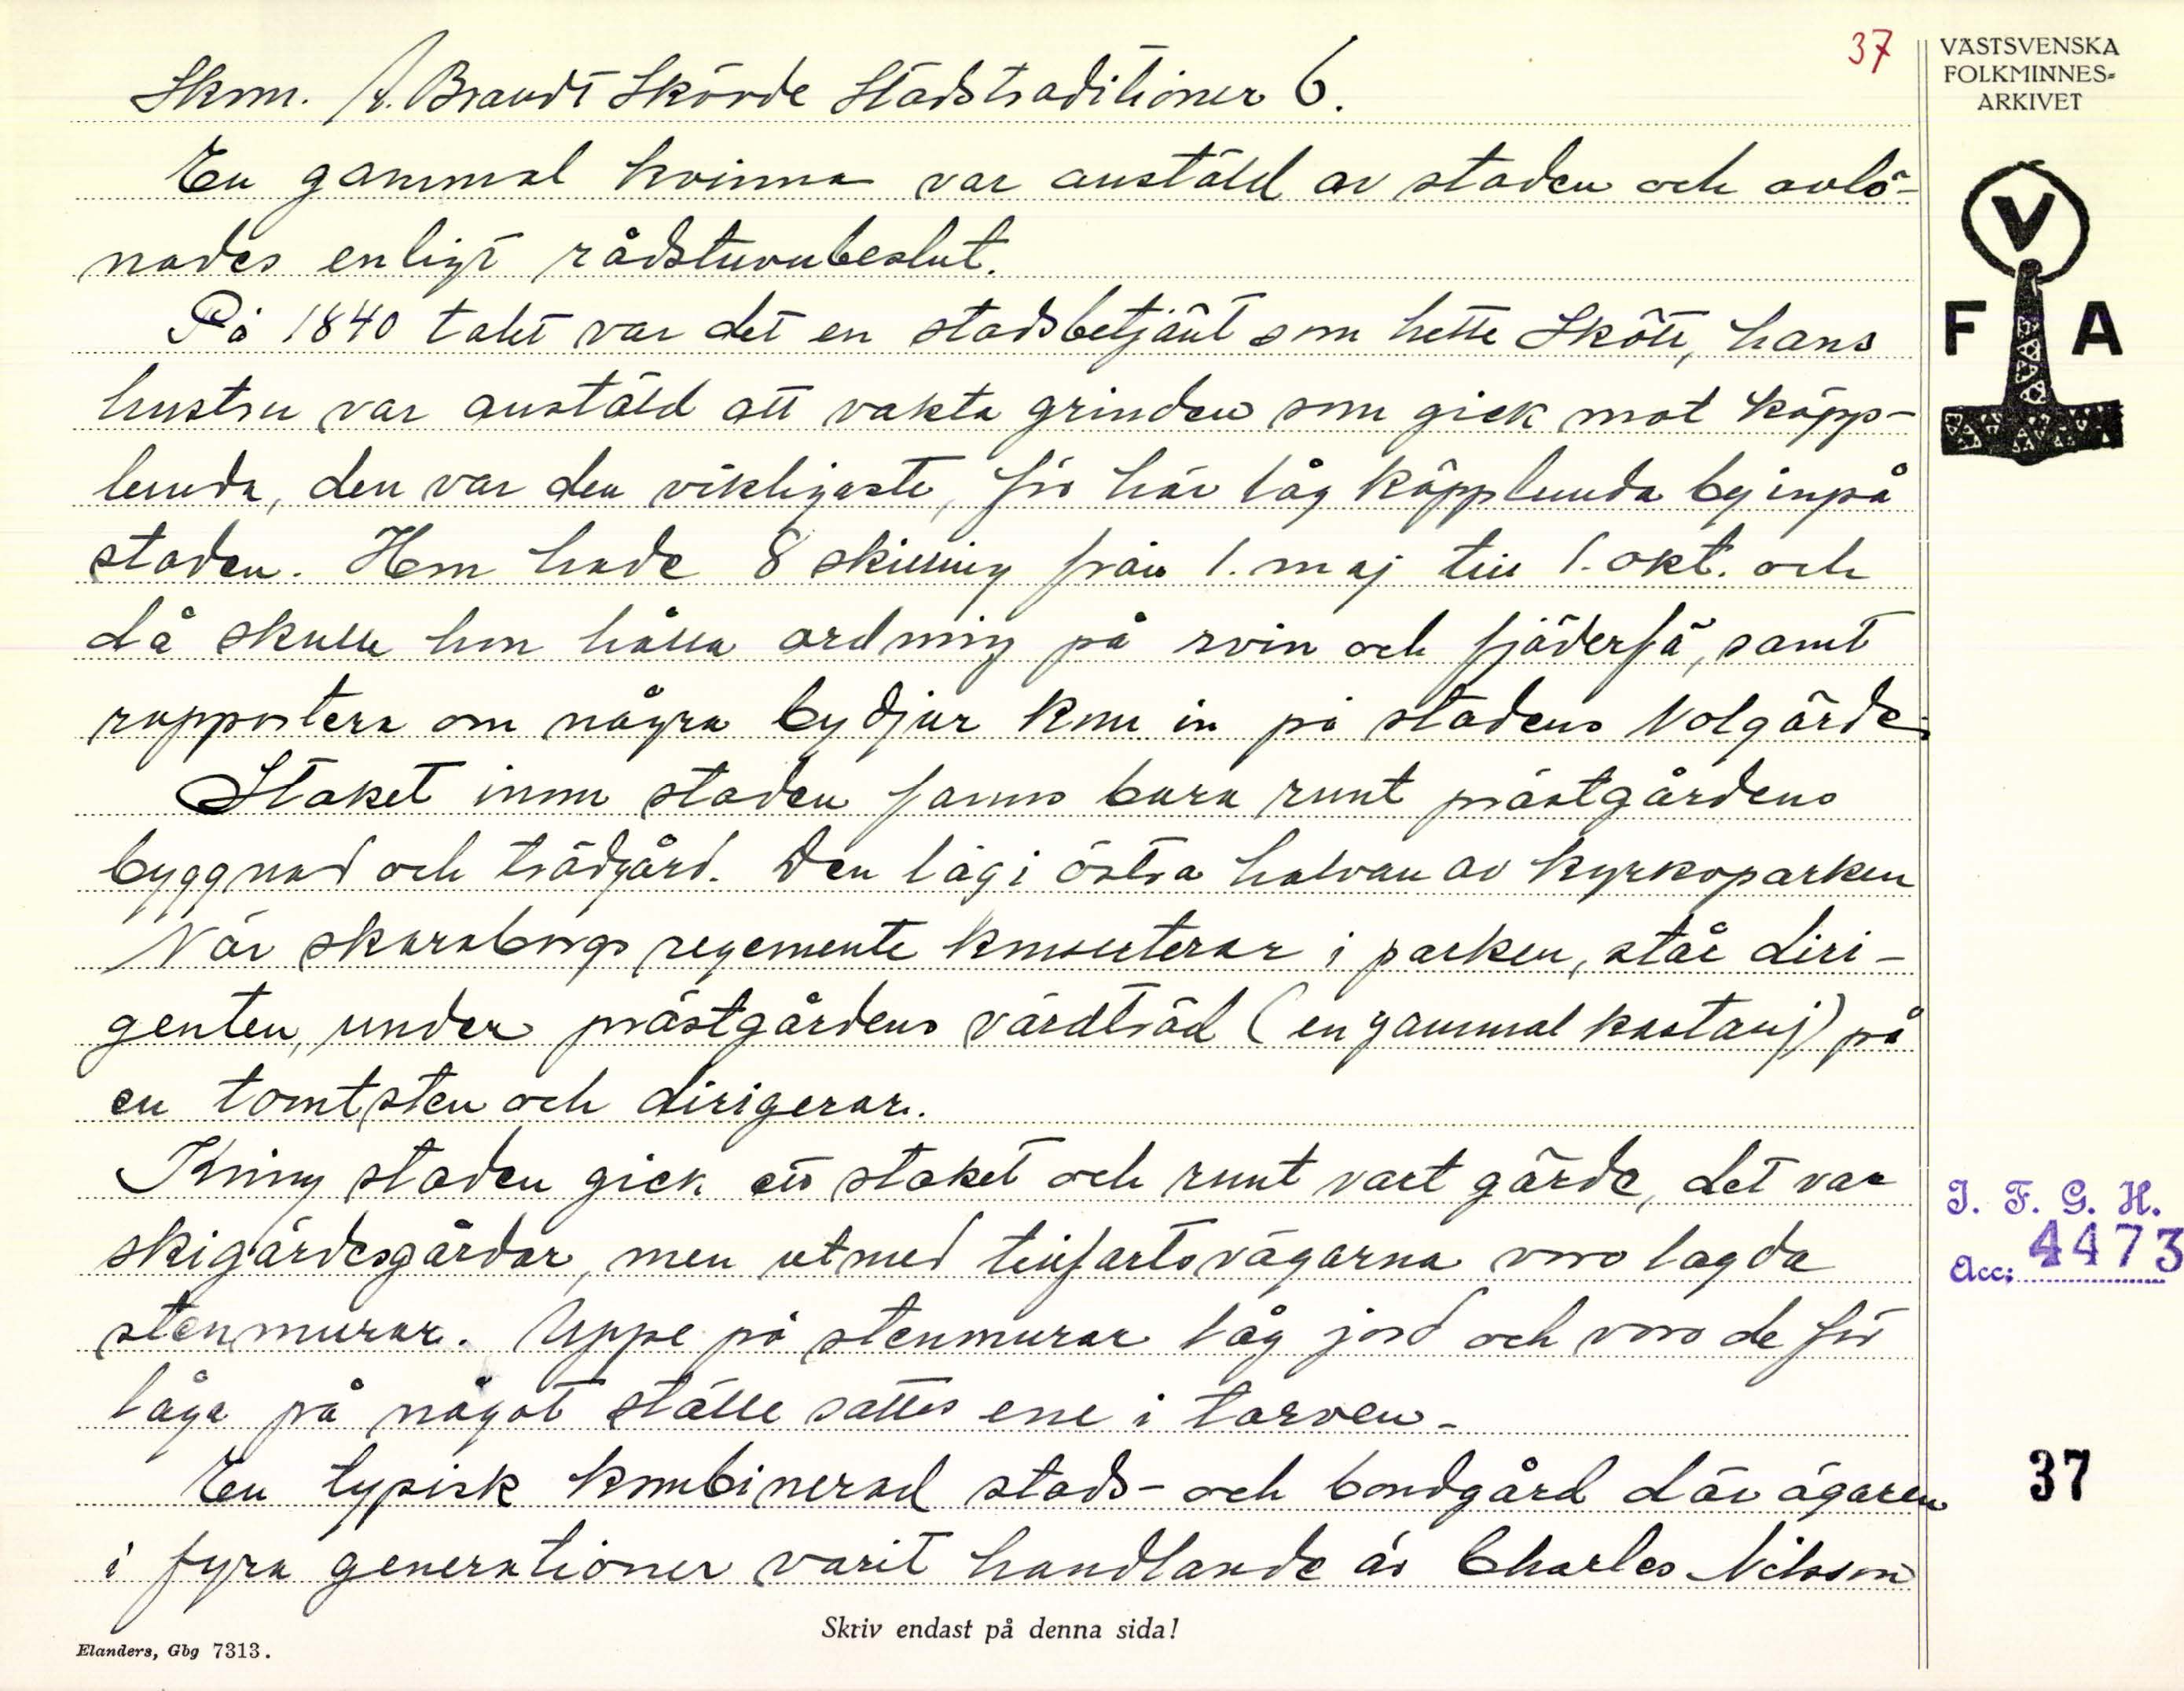 37
VÄSTSVENSKA
FOLKMINNES=
ARKIVET
Skm. A. Brandt Skövde Stadstraditioner 6.
En gammal kvinna var anstäld av staden och avlö-
nades enligt rådstuvubeslut.
På 1840 talet var det en stadsbetjänt som hette Skött, hans
hustru var anstäld att vakta grinden som gick mot käpp-
lunda, den var den viktigaste, för här låg Käpplunda by inpå
staden. Hon hade 8 skilling från 1. maj till 1. okt. och
då skulle hon hålla ordning på svin och fjäderfä, samt
rapportera om några bydjur kom in på stadens Nolgärde.
Staket inom staden fanns bara runt prästgårdens
byggnad och trädgård. Den låg i östra halvan av kyrkoparken
När skaraborgs regemente konserterar i parken, står diri-
genten, under prästgårdens vårdträd (en gammal kastanj) på
en tomtsten och dirigerar.
Kring staden gick ett staket och runt vart gärde, det var
skigärdesgårdar, men utmed tillfartsvägarna voro lagda
stenmurar. Uppe på stenmurar låg jord och voro de för
låga på något ställe sattes ene i torven.
En typisk kombinerad stads- och bondgård där ägaren
i fyra generationer varit handlande är Charles Nilsson
V
F A
I. F. G. H.
Acc: 4473
37
Skriv endast på denna sida!
Elanders, Gbg 7313.